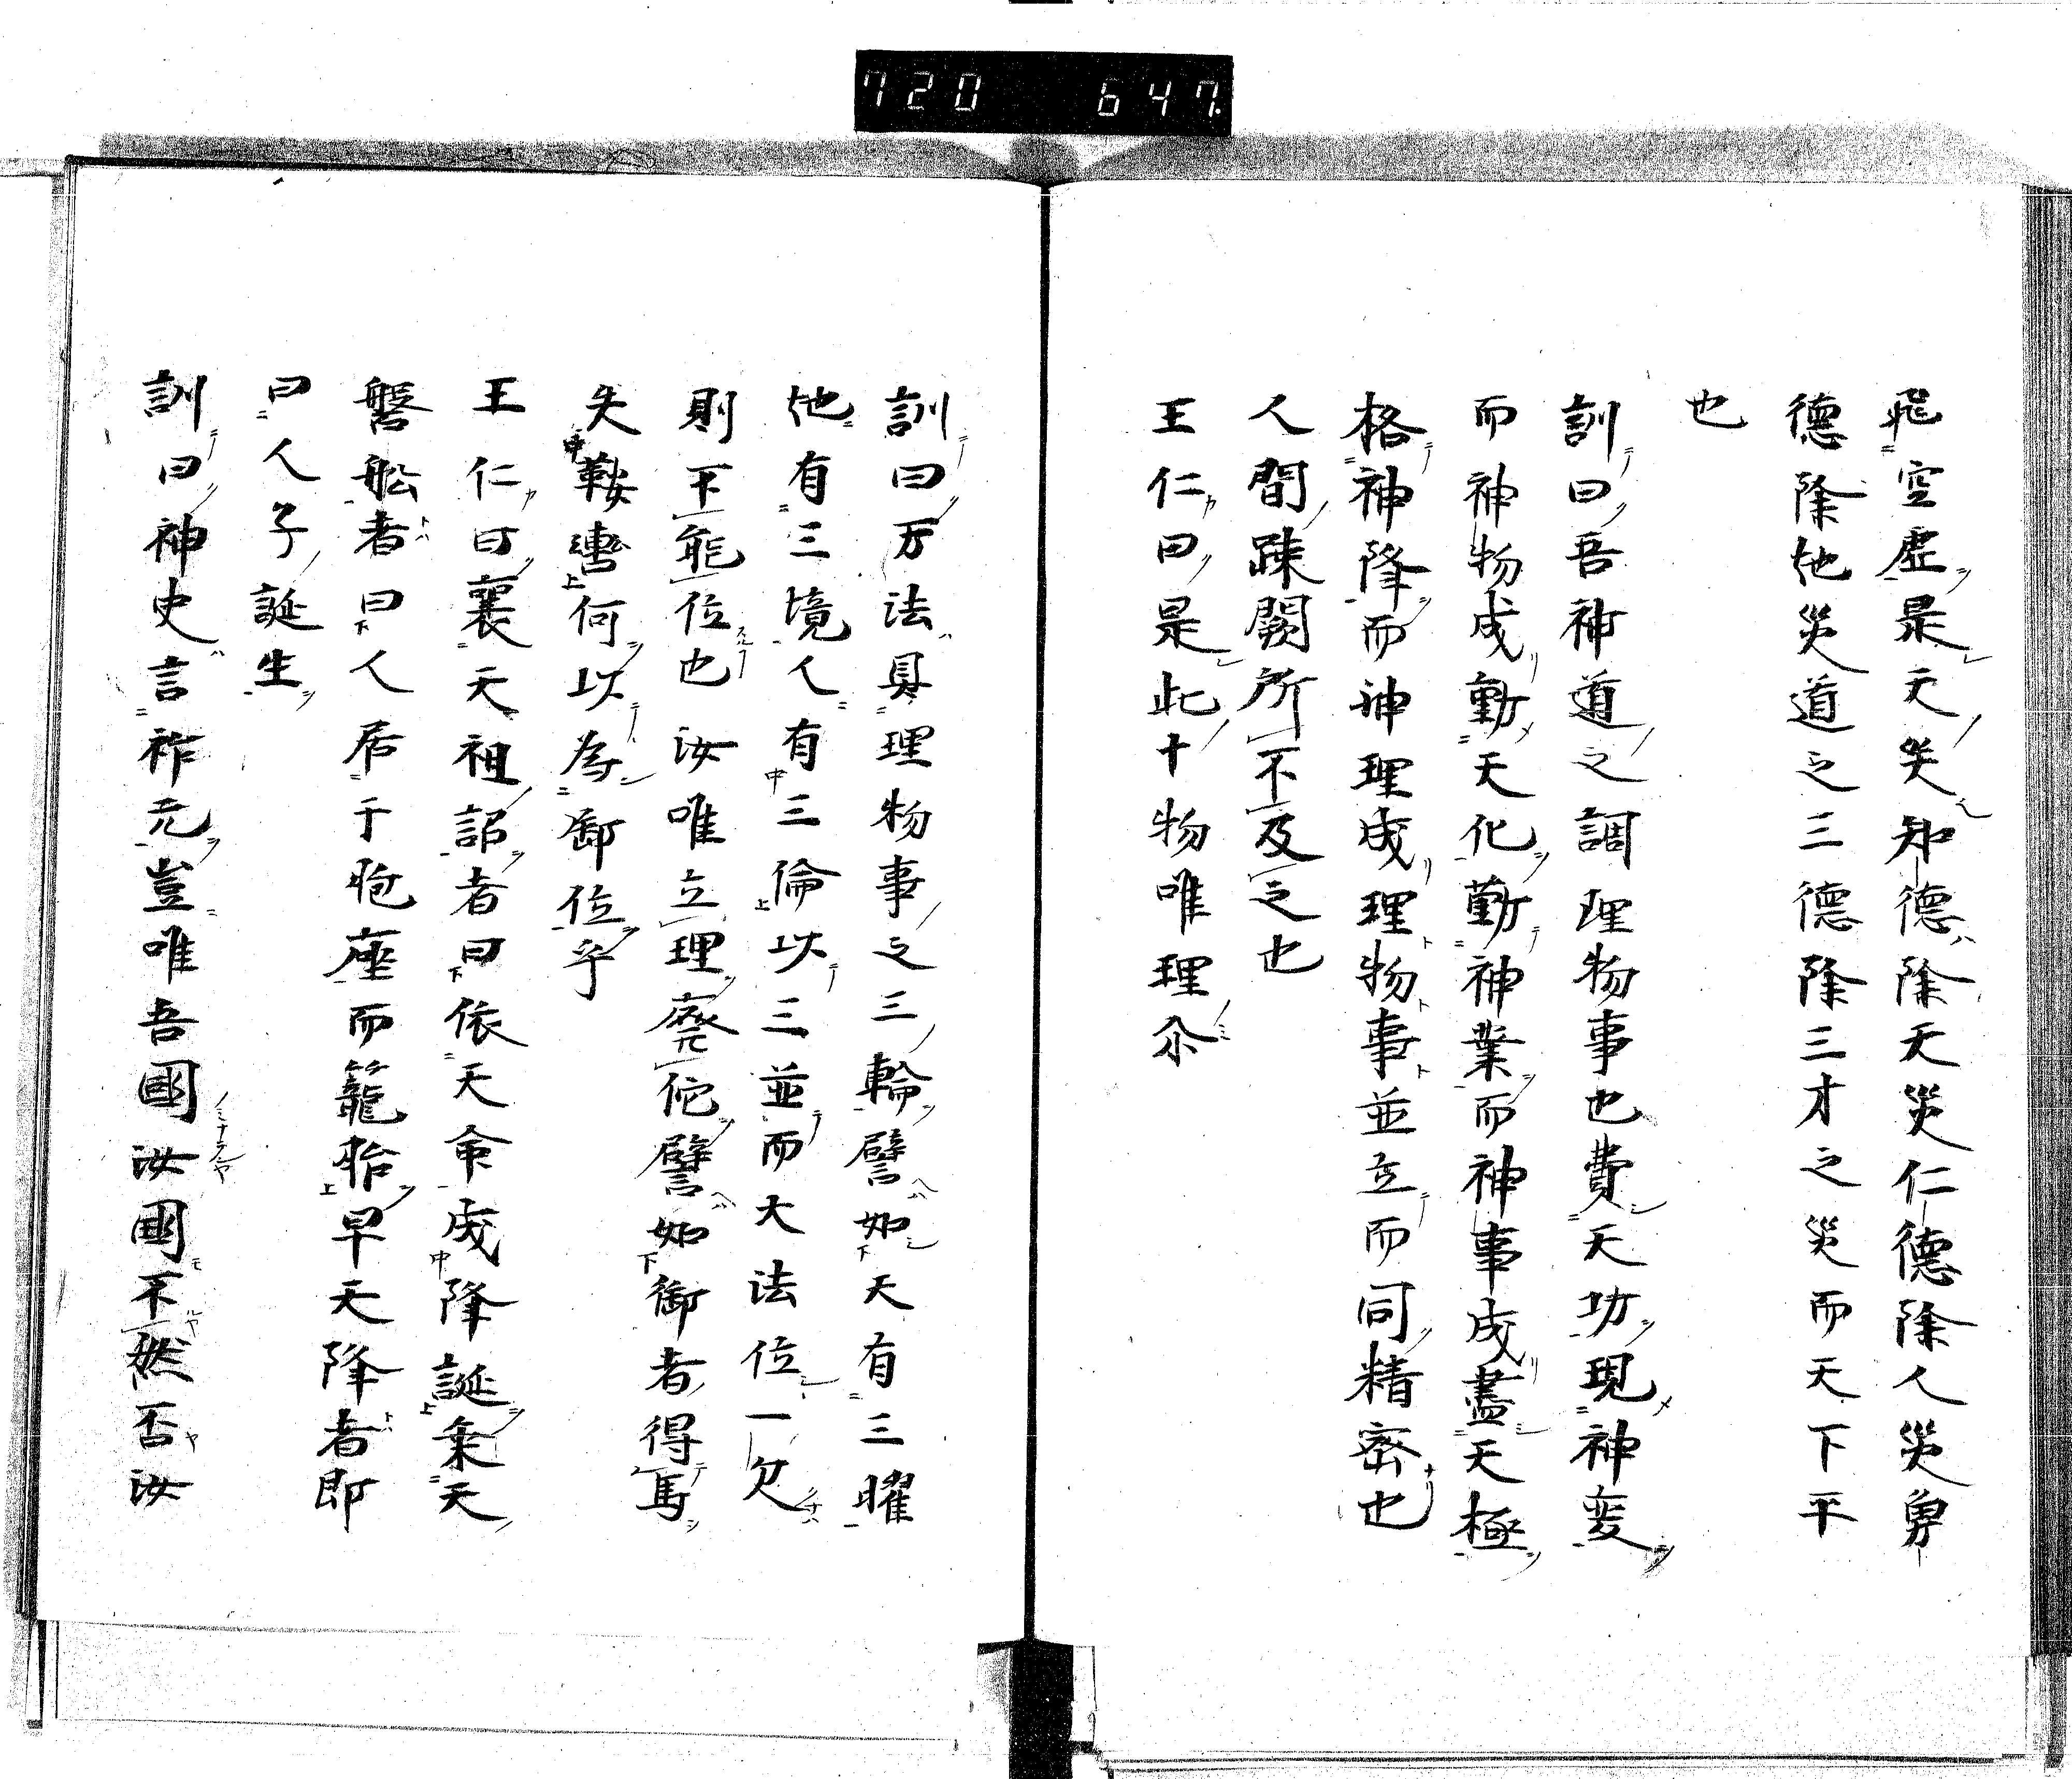 720 647
飛空虚是天災知德除天災仁德除人災勇
德除地災道之三德除三才之災而天下平
也
訓曰吾神道之調理物事也費天功現神変
而神物成動天化勤神業而神事成盡天極
格神降而神理成理物事並立而同精密也
人間踈闕所不及之也
王仁曰是此十物唯理尒
訓曰万法具理物事之三輪譬如天有三曜
地有三境人有三倫以三並而大法位一欠
則不能位也汝唯立理廃佗譬如御者得馬
失鞍轡何以為御位乎
王仁曰襄天祖詔者曰依天命成降誕棄天
磐舩者曰人居于胞座而籠胎早天降者即
曰人子誕生
訓曰神史言祚元豈唯吾國汝國不然否汝